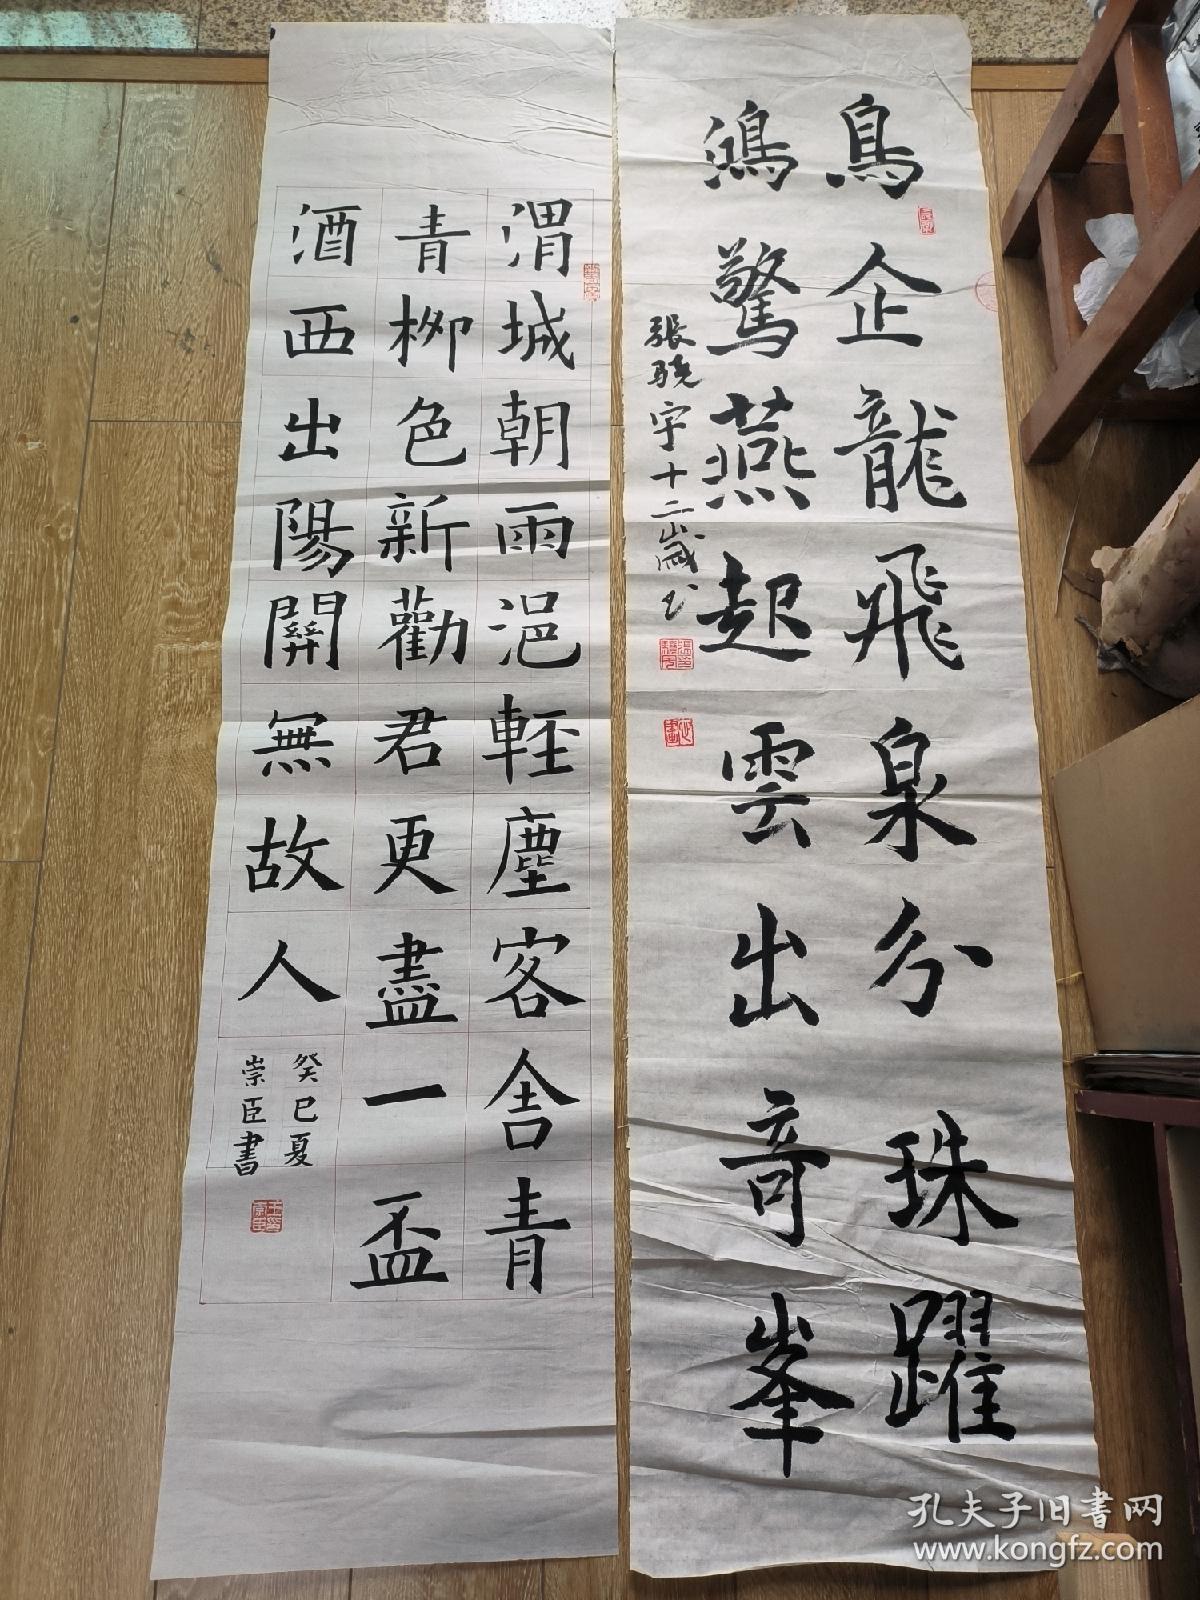 鳥企龍飛泉分珠躍
鴻驚燕起雲出奇峯
張驍宇十二歲书
渭城朝雨浥輕塵客舍青
青柳色新勸君更盡一盃
酒西出陽關無故人
癸巳夏
崇臣書
孔夫子旧书网
www.kongfz.com